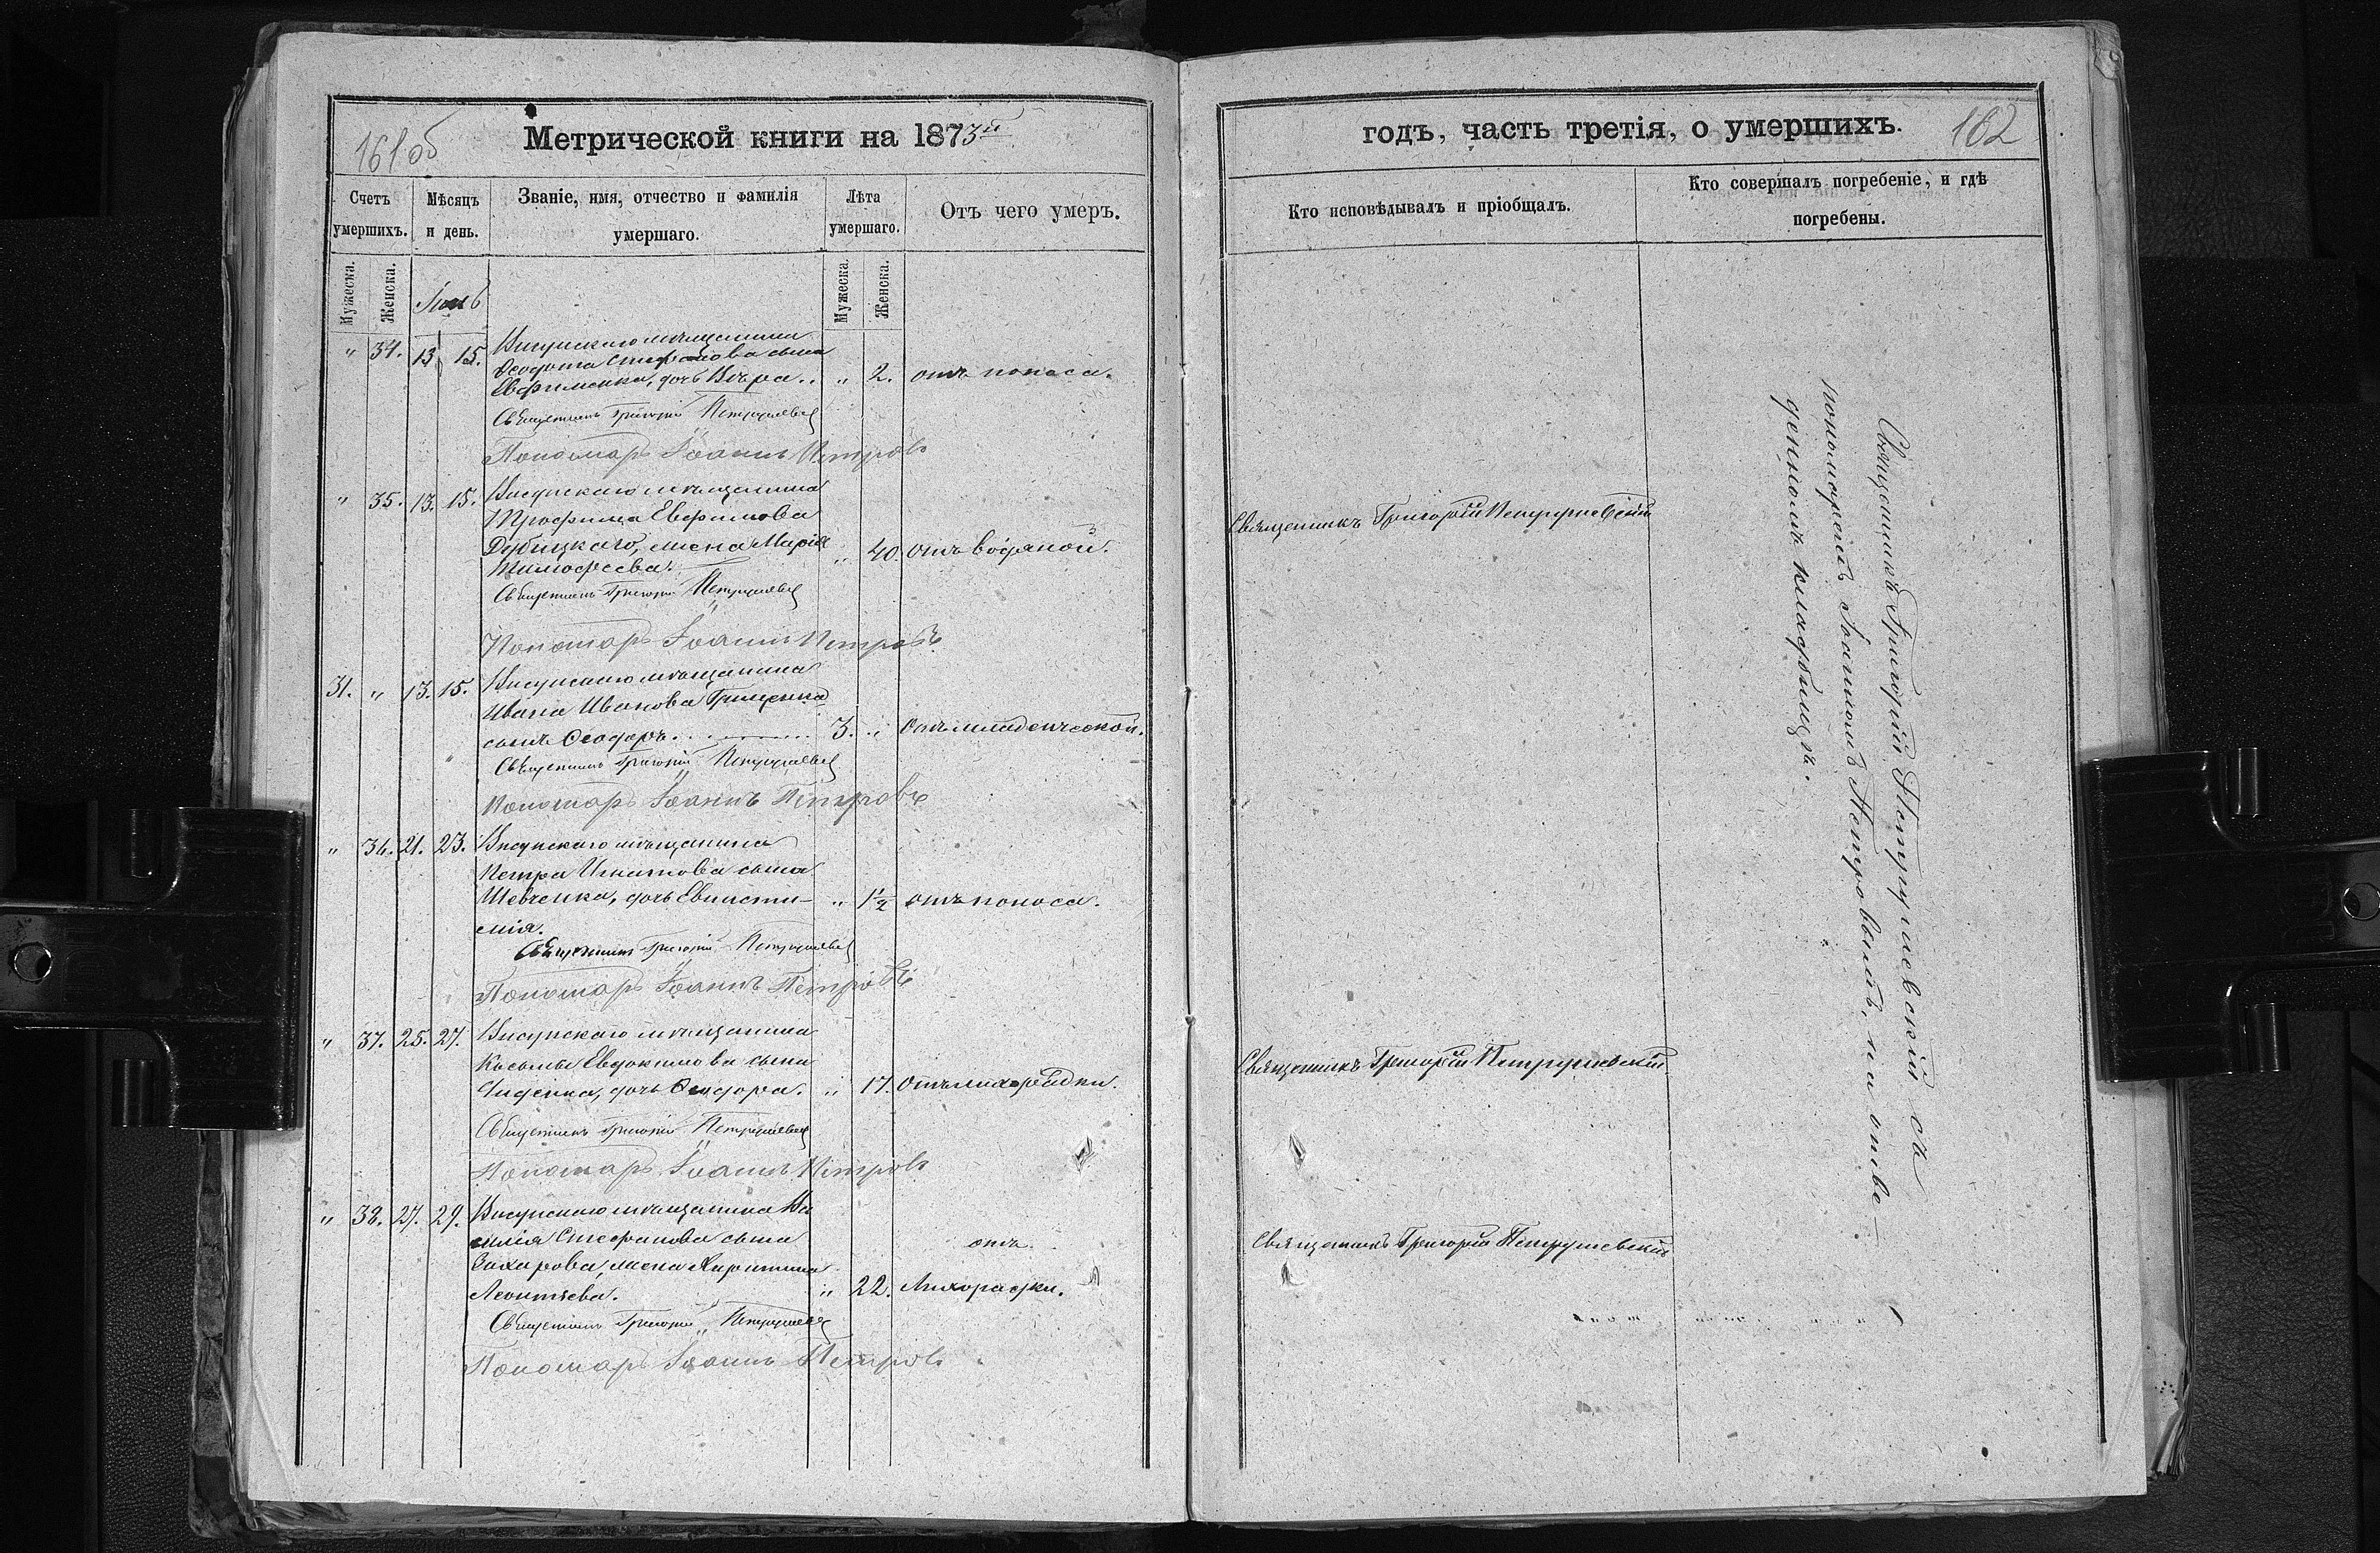 161 об
Метрической книги на 1873й
Счетъ умершихъ.
Мѣсяцъ и день.
Званіе, имя, отчество и фамилія умершаго.
Лѣта умершаго.
Отъ чего умеръ.
Мужеска.
Женска.
Мужеска.
Женска.
" 34. 13 15. Висунскаго мѣщанина
Ѳедота сына
Евфименка, дочь Вѣра.. " 2. отъ поноса.
Священникъ Григорій
Пономарь Іоаннъ Петровъ
" 35. 13. 15. Висунскаго мѣщанина
Трофима Евфимова
Дубицкаго, жена Марія " 40. отъ водяной.
Тимофеева.
Священникъ Григорій
Пономарь Іоаннъ Петровъ
31. " 13. 15. Висунскаго мѣщанина
Ивана Иванова Грищенка
сынъ Ѳеодоръ. 3. " Отъ младенческой.
Священникъ Григорій
Пономарь Іоаннъ Петровъ
" 36. 21. 23. Висунскаго мѣщанина
Петра Игнатова сына
Шевченка, дочь " 1½ отъ поноса.
мія.
Священникъ Григорій
Пономарь Іоаннъ Петровъ
" 37. 25. 27. Висунскаго мѣщанина
Косьмы Евдокимова сына
дочь Ѳеодора. " 17. Отъ лихорадки.
Священникъ Григорій
Пономарь Іоаннъ Петровъ
" 38. 27. 29. Висунскаго мѣщанина Ва
силія Стефанова сына отъ
Захарова, жена
Леонтьева. " 22. Лихорадки.
Священникъ Григорій
Пономарь Іоаннъ Петровъ
годъ, часть третія, о умершихъ.
162
Кто исповѣдывалъ и пріобщалъ.
Кто совершалъ погребеніе, и гдѣ
погребены.
Священникъ Григорій Петрушевскій
Священникъ Григорій Петрушевскій
Священникъ Григорій Петрушевскій
Священникъ Григорій Петрушевскій съ
пономаремъ Іоанномъ Петровымъ, на отве-
денномъ кладбищѣ.